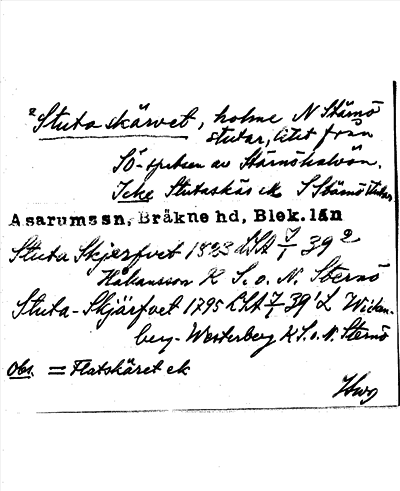 2 Stuta skärvet, holme N Stärnö
stutar, litet från
Sö-spetsen av Stärnöhalvön.
Icke Stutaskär ek S Stärnö
Asarums sn, Bräkne hd, Blek. län
Stuta Skjerfvet 1823 LSA 7/1 39 2
Håkansson K S. o. N. Sternö
Stuta-Skjärfvet 1795 LSA 7/1 39 1 L Widen-
berg-Westerberg K S. o. N. Sternö
Obs. = Flatskäret ek